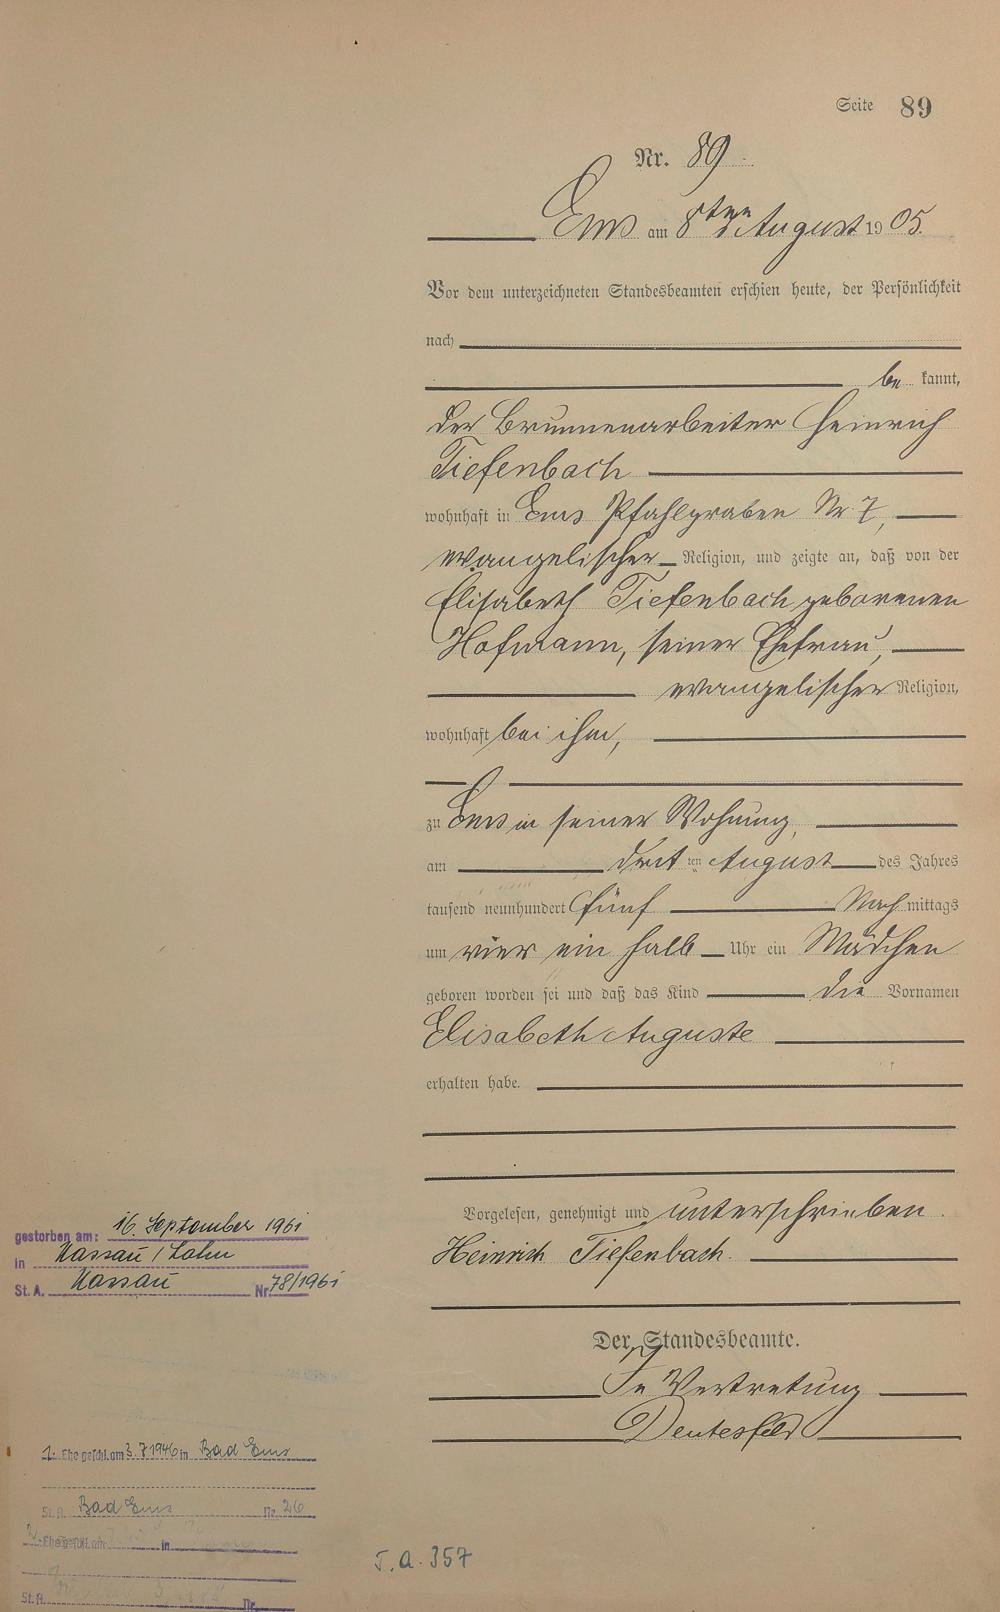 Seite 89
Nr. 89
Ems am 8ten August 1905.
Vor dem unterzeichneten Standesbeamten erschien heute, der Persönlichkeit
nach
be kannt,
der Brunnenarbeiter Heinrich
Tiefenbach
wohnhaft in Ems Pfahlgraben Nr. 7,
evangelischer Religion, und zeigte an, daß von der
Elisabeth Tiefenbach geborenen
Hofmann, seiner Ehefrau,
evangelischer Religion,
wohnhaft bei ihm,
zu Ems in seiner Wohnung,
am dritten August des Jahres
tausend neunhundert fünf Nachmittags
um vier ein halb Uhr ein Mädchen
geboren worden sei und daß das Kind die Vornamen
Elisabeth Auguste
erhalten habe.
Vorgelesen, genehmigt und unterschrieben.
Heinrich Tiefenbach.
Der Standesbeamte.
In Vertretung
gestorben am: 16. September 1961
in Nassau / Lahn
St. A. Nassau Nr. 78/1961
1. Ehe geschl. am 3.7.1946 in Bad Ems
St. A. Bad Ems Nr. 26
2. Ehe geschl. am in
St. A. Nr.
J. A. 357